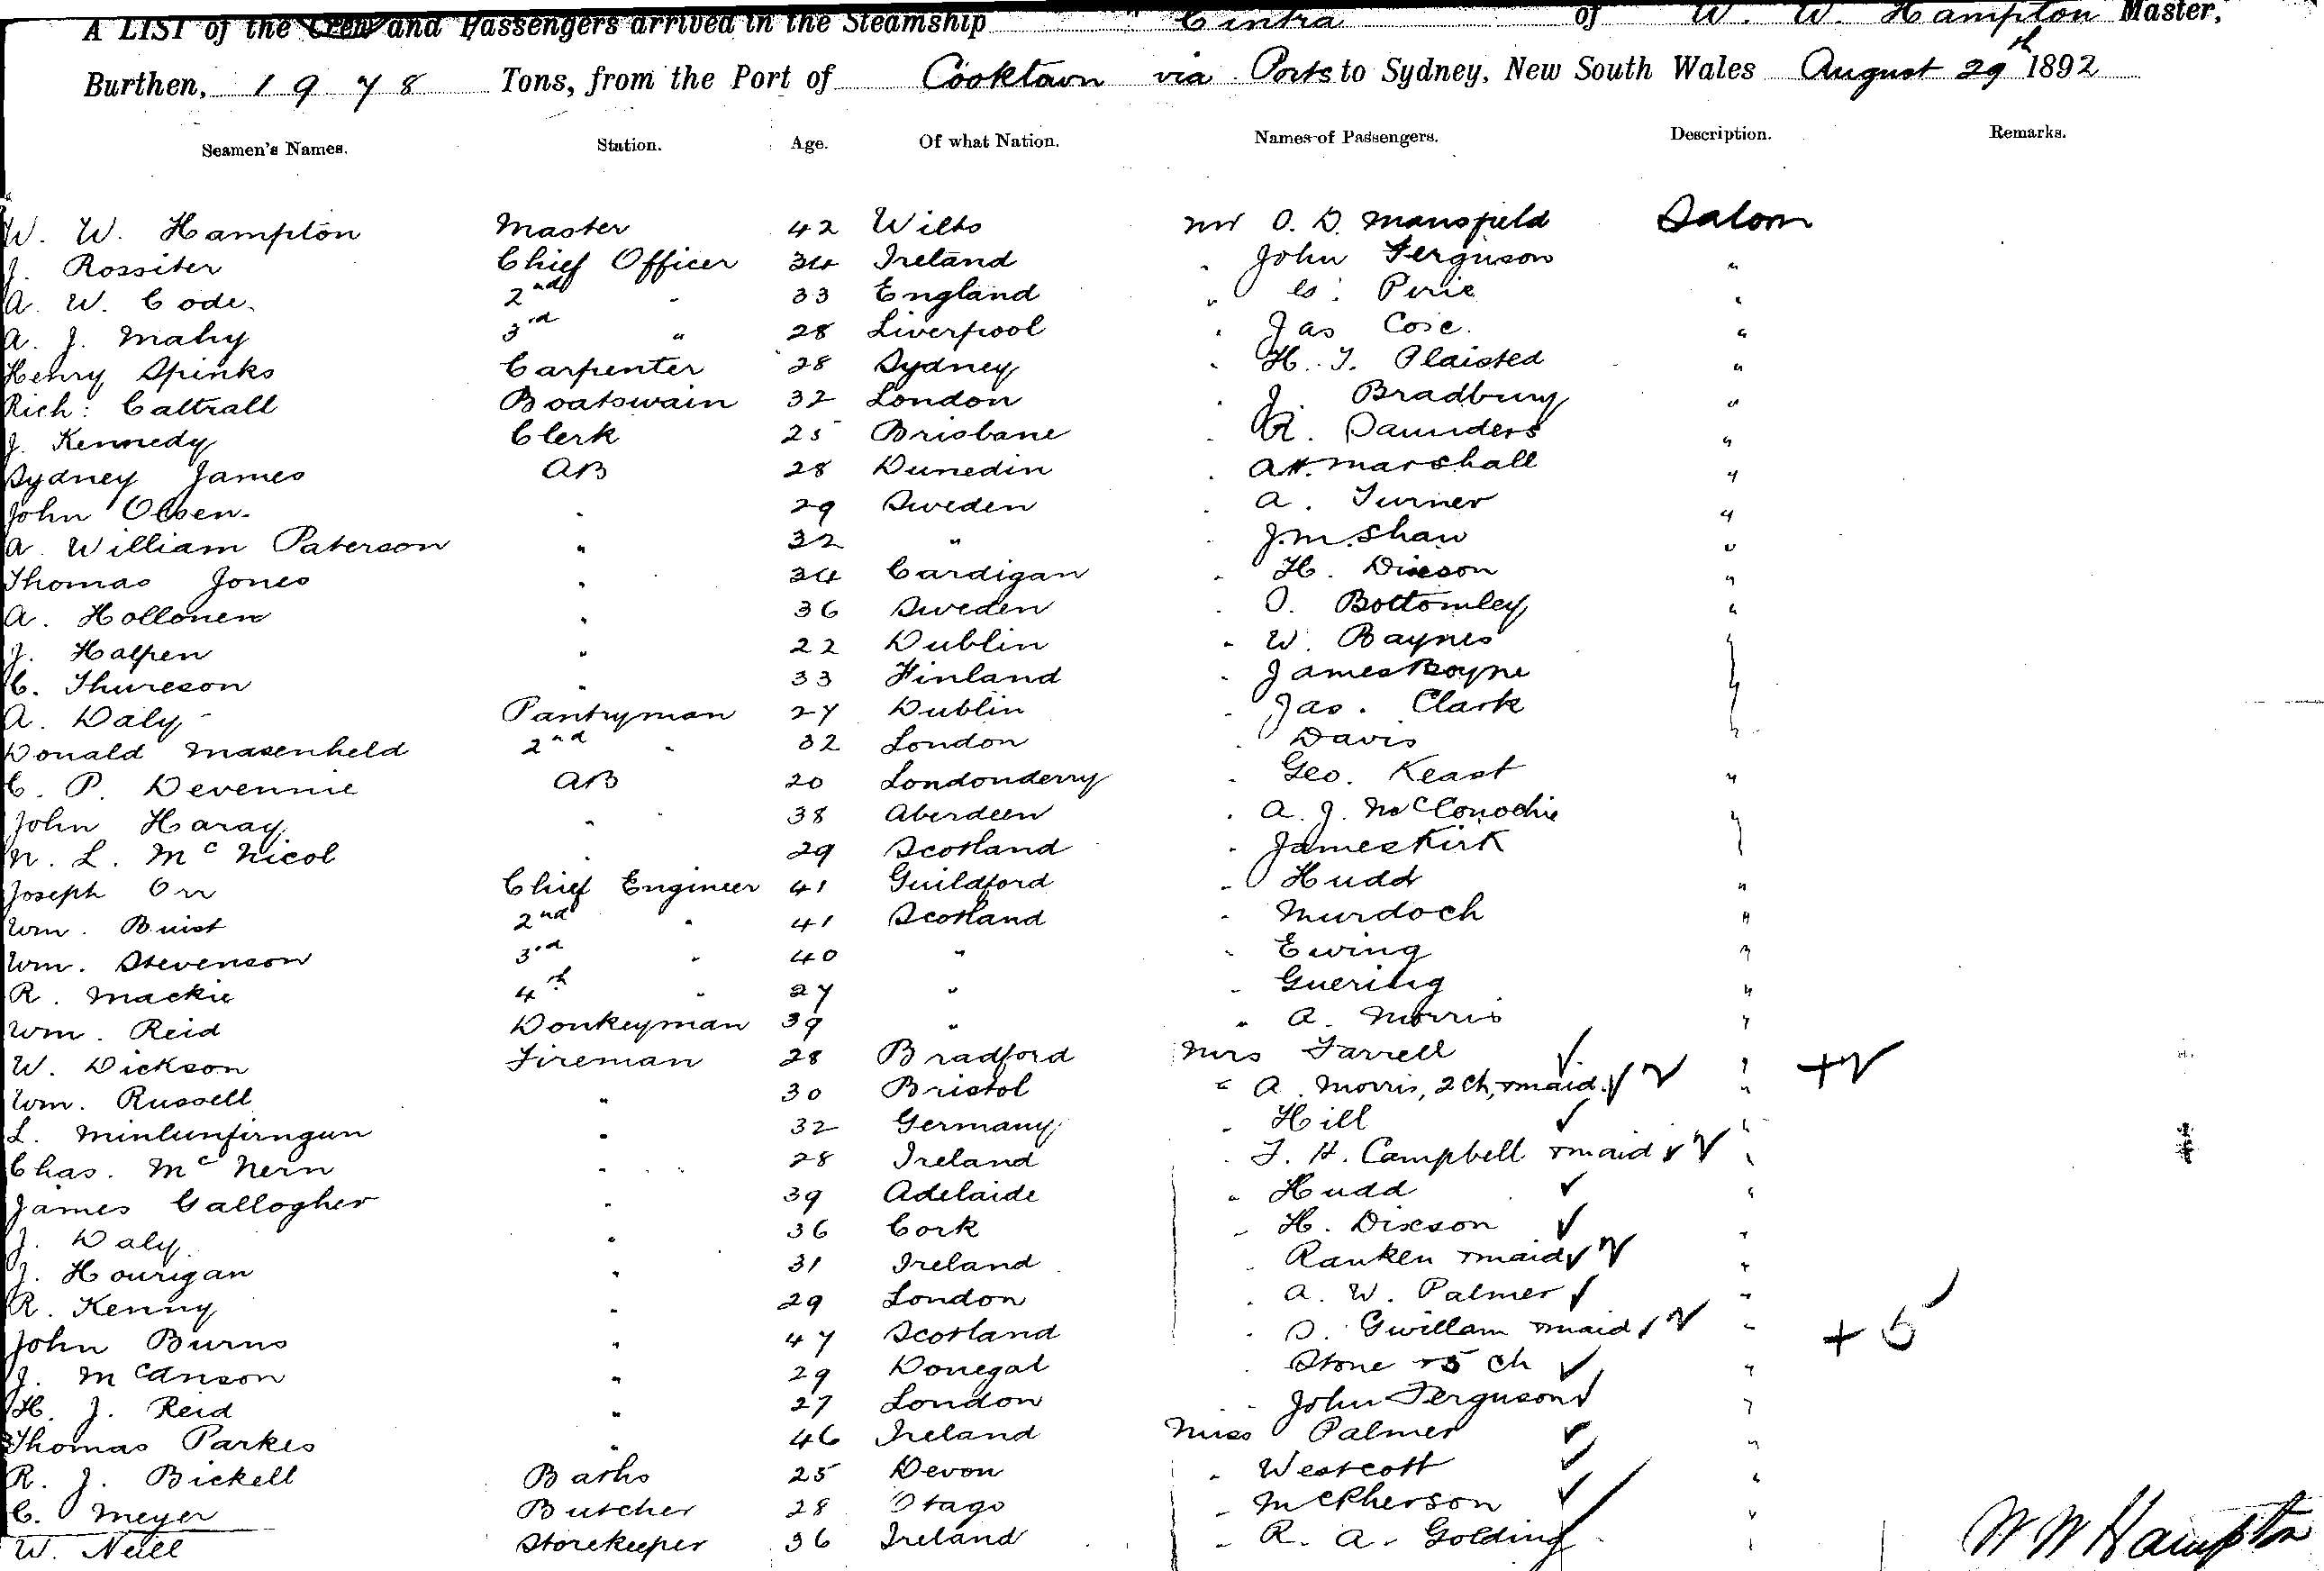 A LIST of the Crew and Passengers arrived in the Steamship "Cintra of W. W. Hampton Master,
Burthen, 1978 Tons, from the Port of Cooktown via Ports to Sydney, New South Wales August 29th 1892
Seamen's Names. Station. Age. Of what Nation. Names of Passengers. Description. Remarks.
W. W. Hampton Master 42 Wilts Mr O. D. Mansfield Saloon
J. Rossiter Chief Officer 34 Ireland " John Ferguson "
A. W. Code. 2nd " 33 England " G. Pirie "
A. J. Mahy 3rd " 28 Liverpool " Jas Coic. "
Henry Spinks Carpenter 28 Sydney " H. T. Plaisted "
Rich: Caltrall Boatswain 32 London " J. Bradbury "
J. Kennedy Clerk 25 Brisbane " R. Saunders "
Sydney James AB 28 Dunedin " A.H. Marshall "
John Olsen. " 29 Sweden " A. Turner "
A. William Paterson " 32 " " J.M. Shaw "
Thomas Jones " 34 Cardigan " H. Dixson "
A. Hollonen " 36 Sweden " O. Bottomley "
J. Halpen " 22 Dublin " W. Baynes
C. Thureson " 33 Finland " James Boyne
A. Daly Pantryman 27 Dublin " Jas. Clark
Donald Masenheld 2nd " 32 London " Davis
C. P. Devennie AB 20 Londonderry " Geo. Keast "
John Haray " 38 Aberdeen " A. J. McConochie
N. L. McNicol " 29 Scotland " James Kirk
Joseph Orr Chief Engineer 41 Guildford " Hudd "
Wm. Buist 2nd " 41 Scotland " Murdoch "
Wm. Stevenson 3rd " 40 " " Ewing "
R. Mackie 4th " 27 " " Guering "
Wm. Reid Donkeyman 39 " " A. Morris "
W. Dickson Fireman 28 Bradford Mrs Farrell ✓ "
Wm. Russell " 30 Bristol " A. Morris, 2 Ch, + maid ✓ ✓ " + 2
L. Minlunfirngun " 32 Germany " Hill ✓ "
Chas. McNern " 28 Ireland " F. H. Campbell + maid ✓ ✓ "
James Gallogher " 39 Adelaide " Hudd ✓ "
J. Daly. " 36 Cork " H. Dixson ✓ "
J. Hourigan " 31 Ireland " Ranken + maid ✓ ✓ "
R. Kenny " 29 London " A. W. Palmer ✓ "
John Burns " 47 Scotland " S. Gwillam + maid ✓ ✓ " + 5 ✓
J. McAnson " 29 Donegal " Stone + 5 Ch ✓ "
H. J. Reid " 27 London " John Ferguson ✓ "
Thomas Parkes " 46 Ireland Miss Palmer ✓ "
R. J. Bickell Baths 25 Devon " Westcott ✓ "
C. Meyer Butcher 28 Otago " McPherson ✓ "
W. Neill Storekeeper 36 Ireland " R. A. Golding ✓ "
W W Hampton